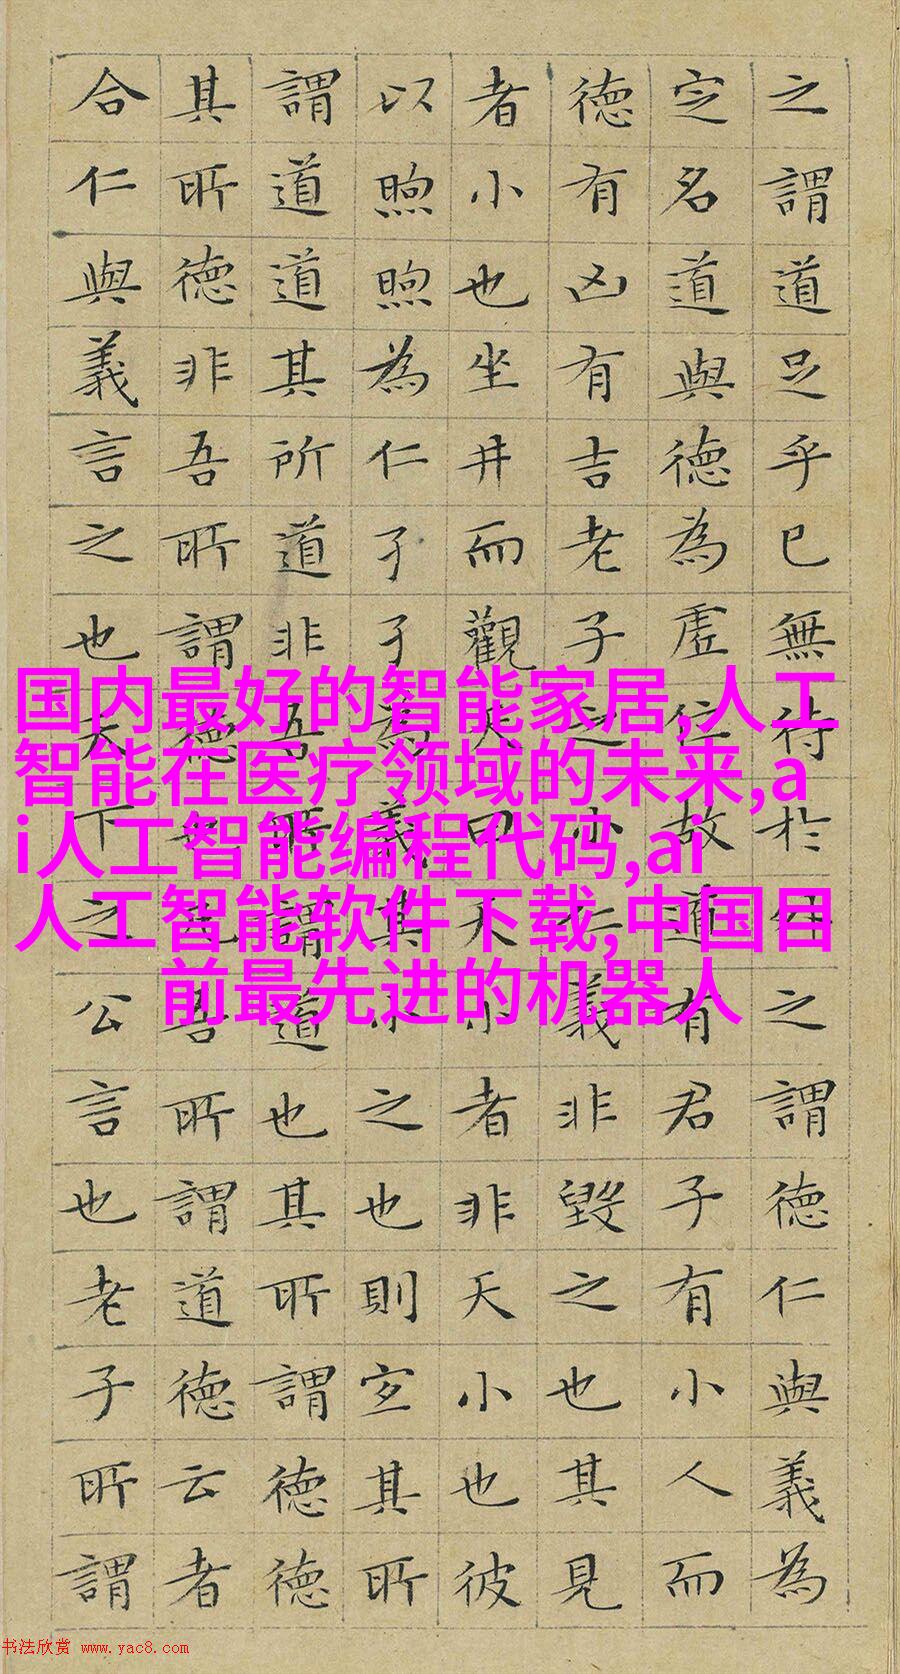 之謂道足乎已無待於外之謂德仁與義為
定名道與德為虛位故道有君子有小人而
德有凶有吉老子之小仁義非毀之也其見
者小也坐井而觀天曰天小者非天小也彼
以煦煦為仁孑孑為義其小之也則宜其所
謂道道其所道非吾所謂道也其所謂德德
其所德非吾所謂德也凡吾所謂道德云者
合仁與義言之也天下之公言也老子所謂
国内最好的智能家居,人工
智能在医疗领域的未来,a
i人工智能编程代码,ai
人工智能软件下载,中国目
前最先进的机器人
书法欣赏 www.yac8.com